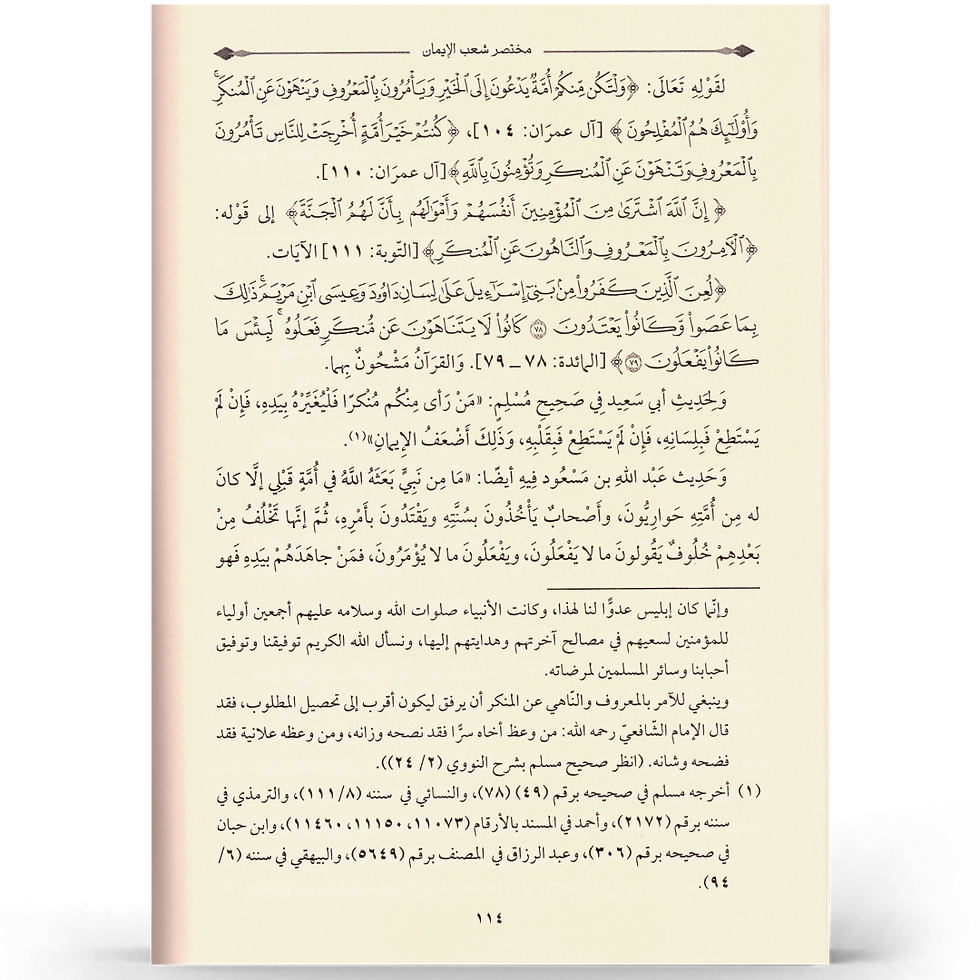 مختصر شعب الإيمان
لقَوْلِهِ تَعَالَى: ﴿وَلْتَكُن مِّنكُمْ أُمَّةٌ يَدْعُونَ إِلَى الْخَيْرِ وَيَأْمُرُونَ بِالْمَعْرُوفِ وَيَنْهَوْنَ عَنِ الْمُنكَرِ ۚ
وَأُولَٰئِكَ هُمُ الْمُفْلِحُونَ﴾ [آل عمرَان: ١٠٤]، ﴿كُنتُمْ خَيْرَ أُمَّةٍ أُخْرِجَتْ لِلنَّاسِ تَأْمُرُونَ
بِالْمَعْرُوفِ وَتَنْهَوْنَ عَنِ الْمُنكَرِ وَتُؤْمِنُونَ بِاللَّهِ﴾ [آل عمرَان: ١١٠].
﴿إِنَّ اللَّهَ اشْتَرَىٰ مِنَ الْمُؤْمِنِينَ أَنفُسَهُمْ وَأَمْوَالَهُم بِأَنَّ لَهُمُ الْجَنَّةَ﴾ إلى قَوْله:
﴿الْآمِرُونَ بِالْمَعْرُوفِ وَالنَّاهُونَ عَنِ الْمُنكَرِ﴾ [التّوبة: ١١١] الآيَات.
﴿لُعِنَ الَّذِينَ كَفَرُوا مِن بَنِي إِسْرَائِيلَ عَلَىٰ لِسَانِ دَاوُودَ وَعِيسَى ابْنِ مَرْيَمَ ۚ ذَٰلِكَ
بِمَا عَصَوا وَّكَانُوا يَعْتَدُونَ ٧٨ كَانُوا لَا يَتَنَاهَوْنَ عَن مُّنكَرٍ فَعَلُوهُ ۚ لَبِئْسَ مَا
كَانُوا يَفْعَلُونَ ٧٩﴾ [المائدة: ٧٨ ــ ٧٩]. وَالقرَآنُ مَشْحُونٌ بِهِما.
وَلِحَدِيثِ أبي سَعِيد فِي صَحِيحِ مُسْلِمٍ: «مَنْ رَأى مِنْكُم مُنْكرًا فَلْيُغَيِّرْهُ بِيَدِهِ، فَإِنْ لَمْ
يَسْتَطِعْ فَبِلِسَانِهِ، فَإِنْ لَمْ يَسْتَطِعْ فَبِقَلْبِهِ، وَذَلِكَ أَضْعَفُ الإِيمانِ»(١).
وَحَدِيث عَبْد اللهِ بن مَسْعُود فِيهِ أيضًا: «مَا مِن نَبِيٍّ بَعَثَهُ اللَّهُ في أُمَّةٍ قَبْلِي إلَّا كانَ
له مِن أُمَّتِهِ حَوارِيُّونَ، وأَصْحابٌ يَأْخُذُونَ بسُنَّتِهِ ويَقْتَدُونَ بأَمْرِهِ، ثُمَّ إنَّها تَخْلُفُ مِنْ
بَعْدِهِمْ خُلُوفٌ يَقُولونَ ما لا يَفْعَلُونَ، ويَفْعَلُونَ ما لا يُؤْمَرُونَ، فمَنْ جاهَدَهُمْ بيَدِهِ فَهو
وإنّما كان إبليس عدوًّا لنا لهذا، وكانت الأنبياء صلوات الله وسلامه عليهم أجمعين أولياء
للمؤمنين لسعيهم في مصالح آخرتهم وهدايتهم إليها، ونسأل الله الكريم توفيقنا وتوفيق
أحبابنا وسائر المسلمين لمرضاته.
وينبغي للآمر بالمعروف والنّاهي عن المنكر أن يرفق ليكون أقرب إلى تحصيل المطلوب، فقد
قال الإمام الشّافعيّ رحمه الله: من وعظ أخاه سرًّا فقد نصحه وزانه، ومن وعظه علانية فقد
فضحه وشانه. (انظر صحيح مسلم بشرح النووي (٢/ ٢٤)).
(١) أخرجه مسلم في صحيحه برقم (٤٩) (٧٨)، والنسائي في سننه (١١١/٨)، والترمذي في
سننه برقم (٢١٧٢)، وأحمد في المسند بالأرقام (١١٠٧٣، ١١١٥٠، ١١٤٦٠)، وابن حبان
في صحيحه برقم (٣٠٦)، وعبد الرزاق في المصنف برقم (٥٦٤٩)، والبيهقي في سننه (٦/
٩٤).
١١٤